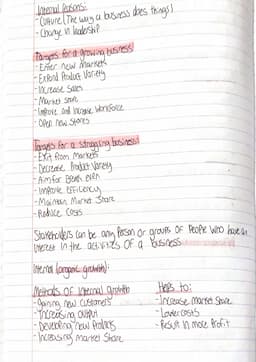 Internal Reasons:
- Culture (The way a business does things)
- Change in leadership
Targets for a growing business:
- Enter new markets
- Expand Product Variety
- Increase sales
- Market share
- Improve and Increase Workforce
- Open new stores
Targets for a struggling business:
- Exit from Markets
- Decrease Product Variety
- Aim for Break even
- Improve Efficiency
- Maintain Market Share
- Reduce Costs
Stakeholders can be any Person or groups of People who have an
interest in the activities of a business.
Internal (organic growth):
Methods of internal growth
Helps to:
- Gaining new customers
- Increase market share
- Increasing output
- Lower costs
- Developing new Products
- Result in more Profit
- Increasing market share